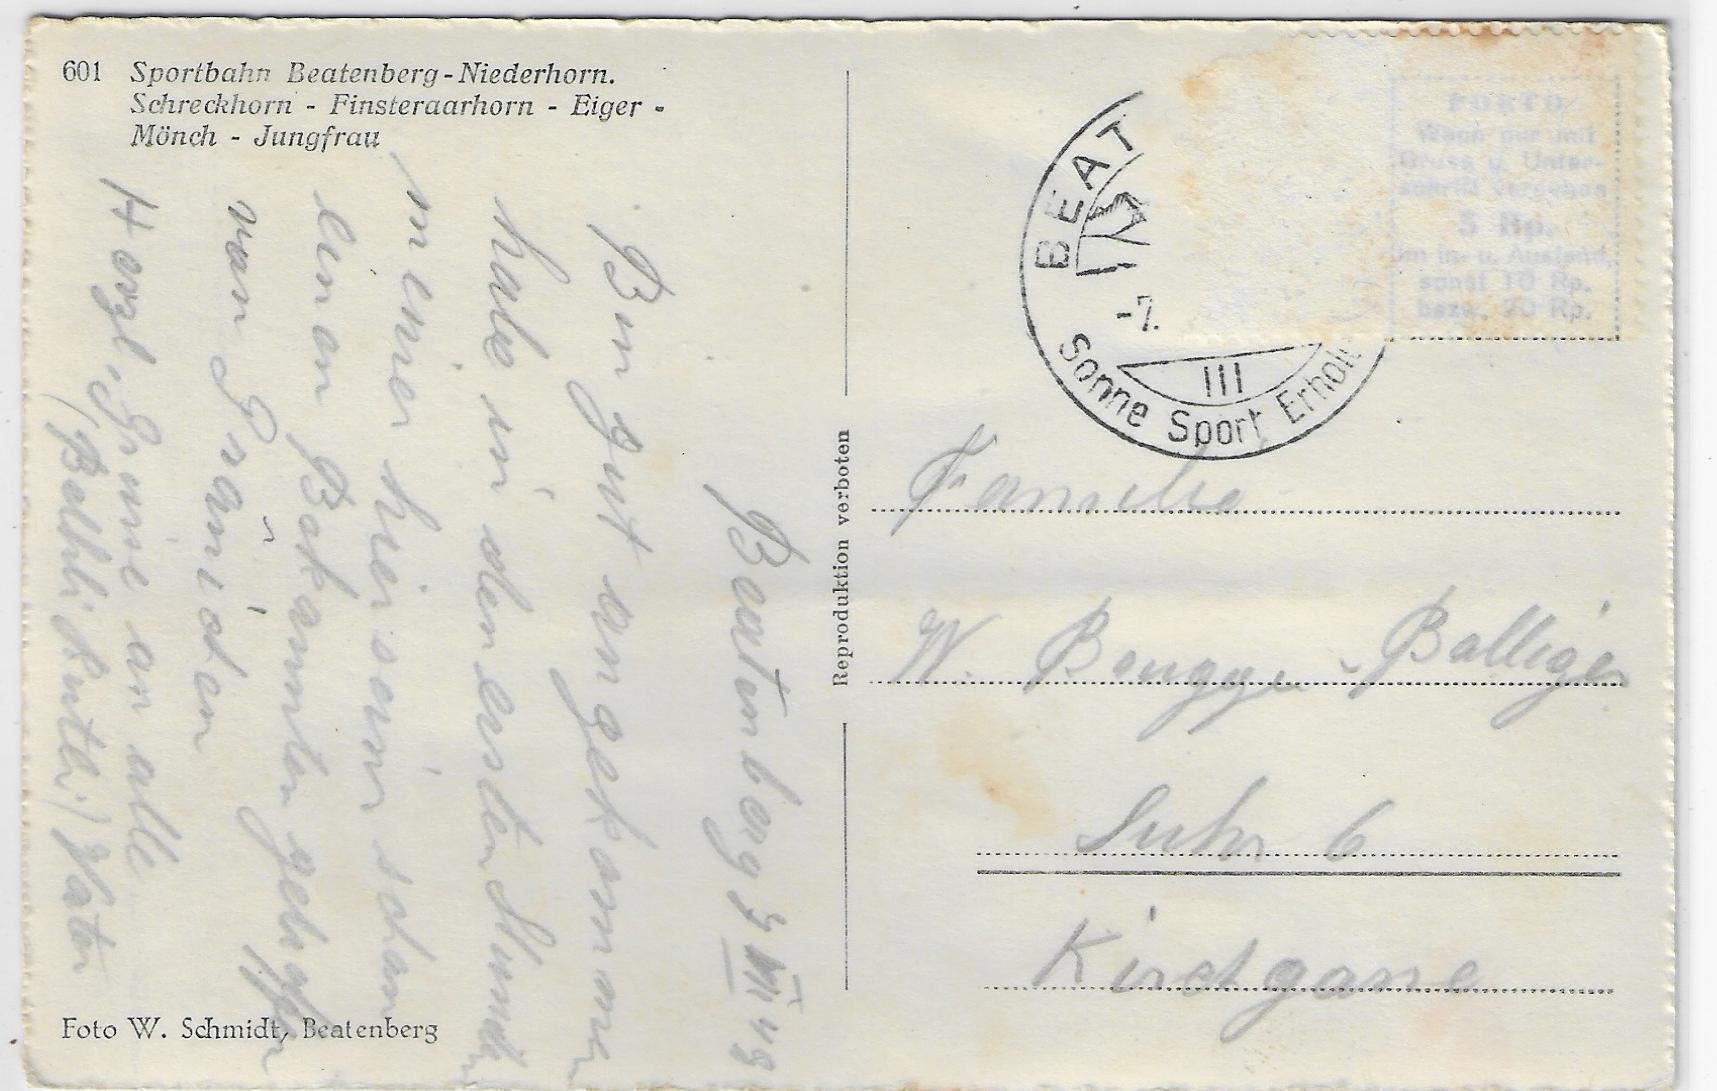 601 Sportbahn Beatenberg-Niederhorn.
Schreckhorn - Finsteraarhorn - Eiger -
Mönch - Jungfrau
Beatenberg VII 49
Bin gut angekommen
habe in den ersten Stunden
meiner hierseins schon
einen Bekannten getroffen
von Gränichen
Herzl. Grüsse an alle
Vater
Foto W. Schmidt, Beatenberg
Reproduktion verboten
BEAT
-7.
III
Sonne Sport Erhol
PORTO
Wenn nur mit
Gruss u. Unter-
schrift versehen
5 Rp.
im In- u. Ausland,
sonst 10 Rp.
bezw. 20 Rp.
Familie
W. Balliger
Suhr 6
Kirchgasse